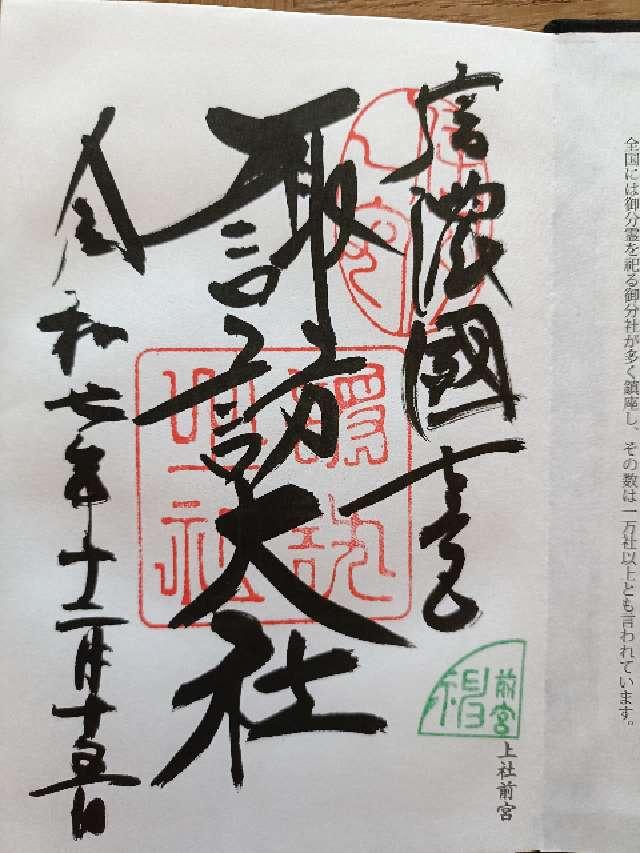 全国には御分霊を祀る御分社が多く鎮座し、その数は一万社以上とも言われています。
信濃國一之宮
諏訪大社
令和七年十二月十五日
前宮
上社前宮